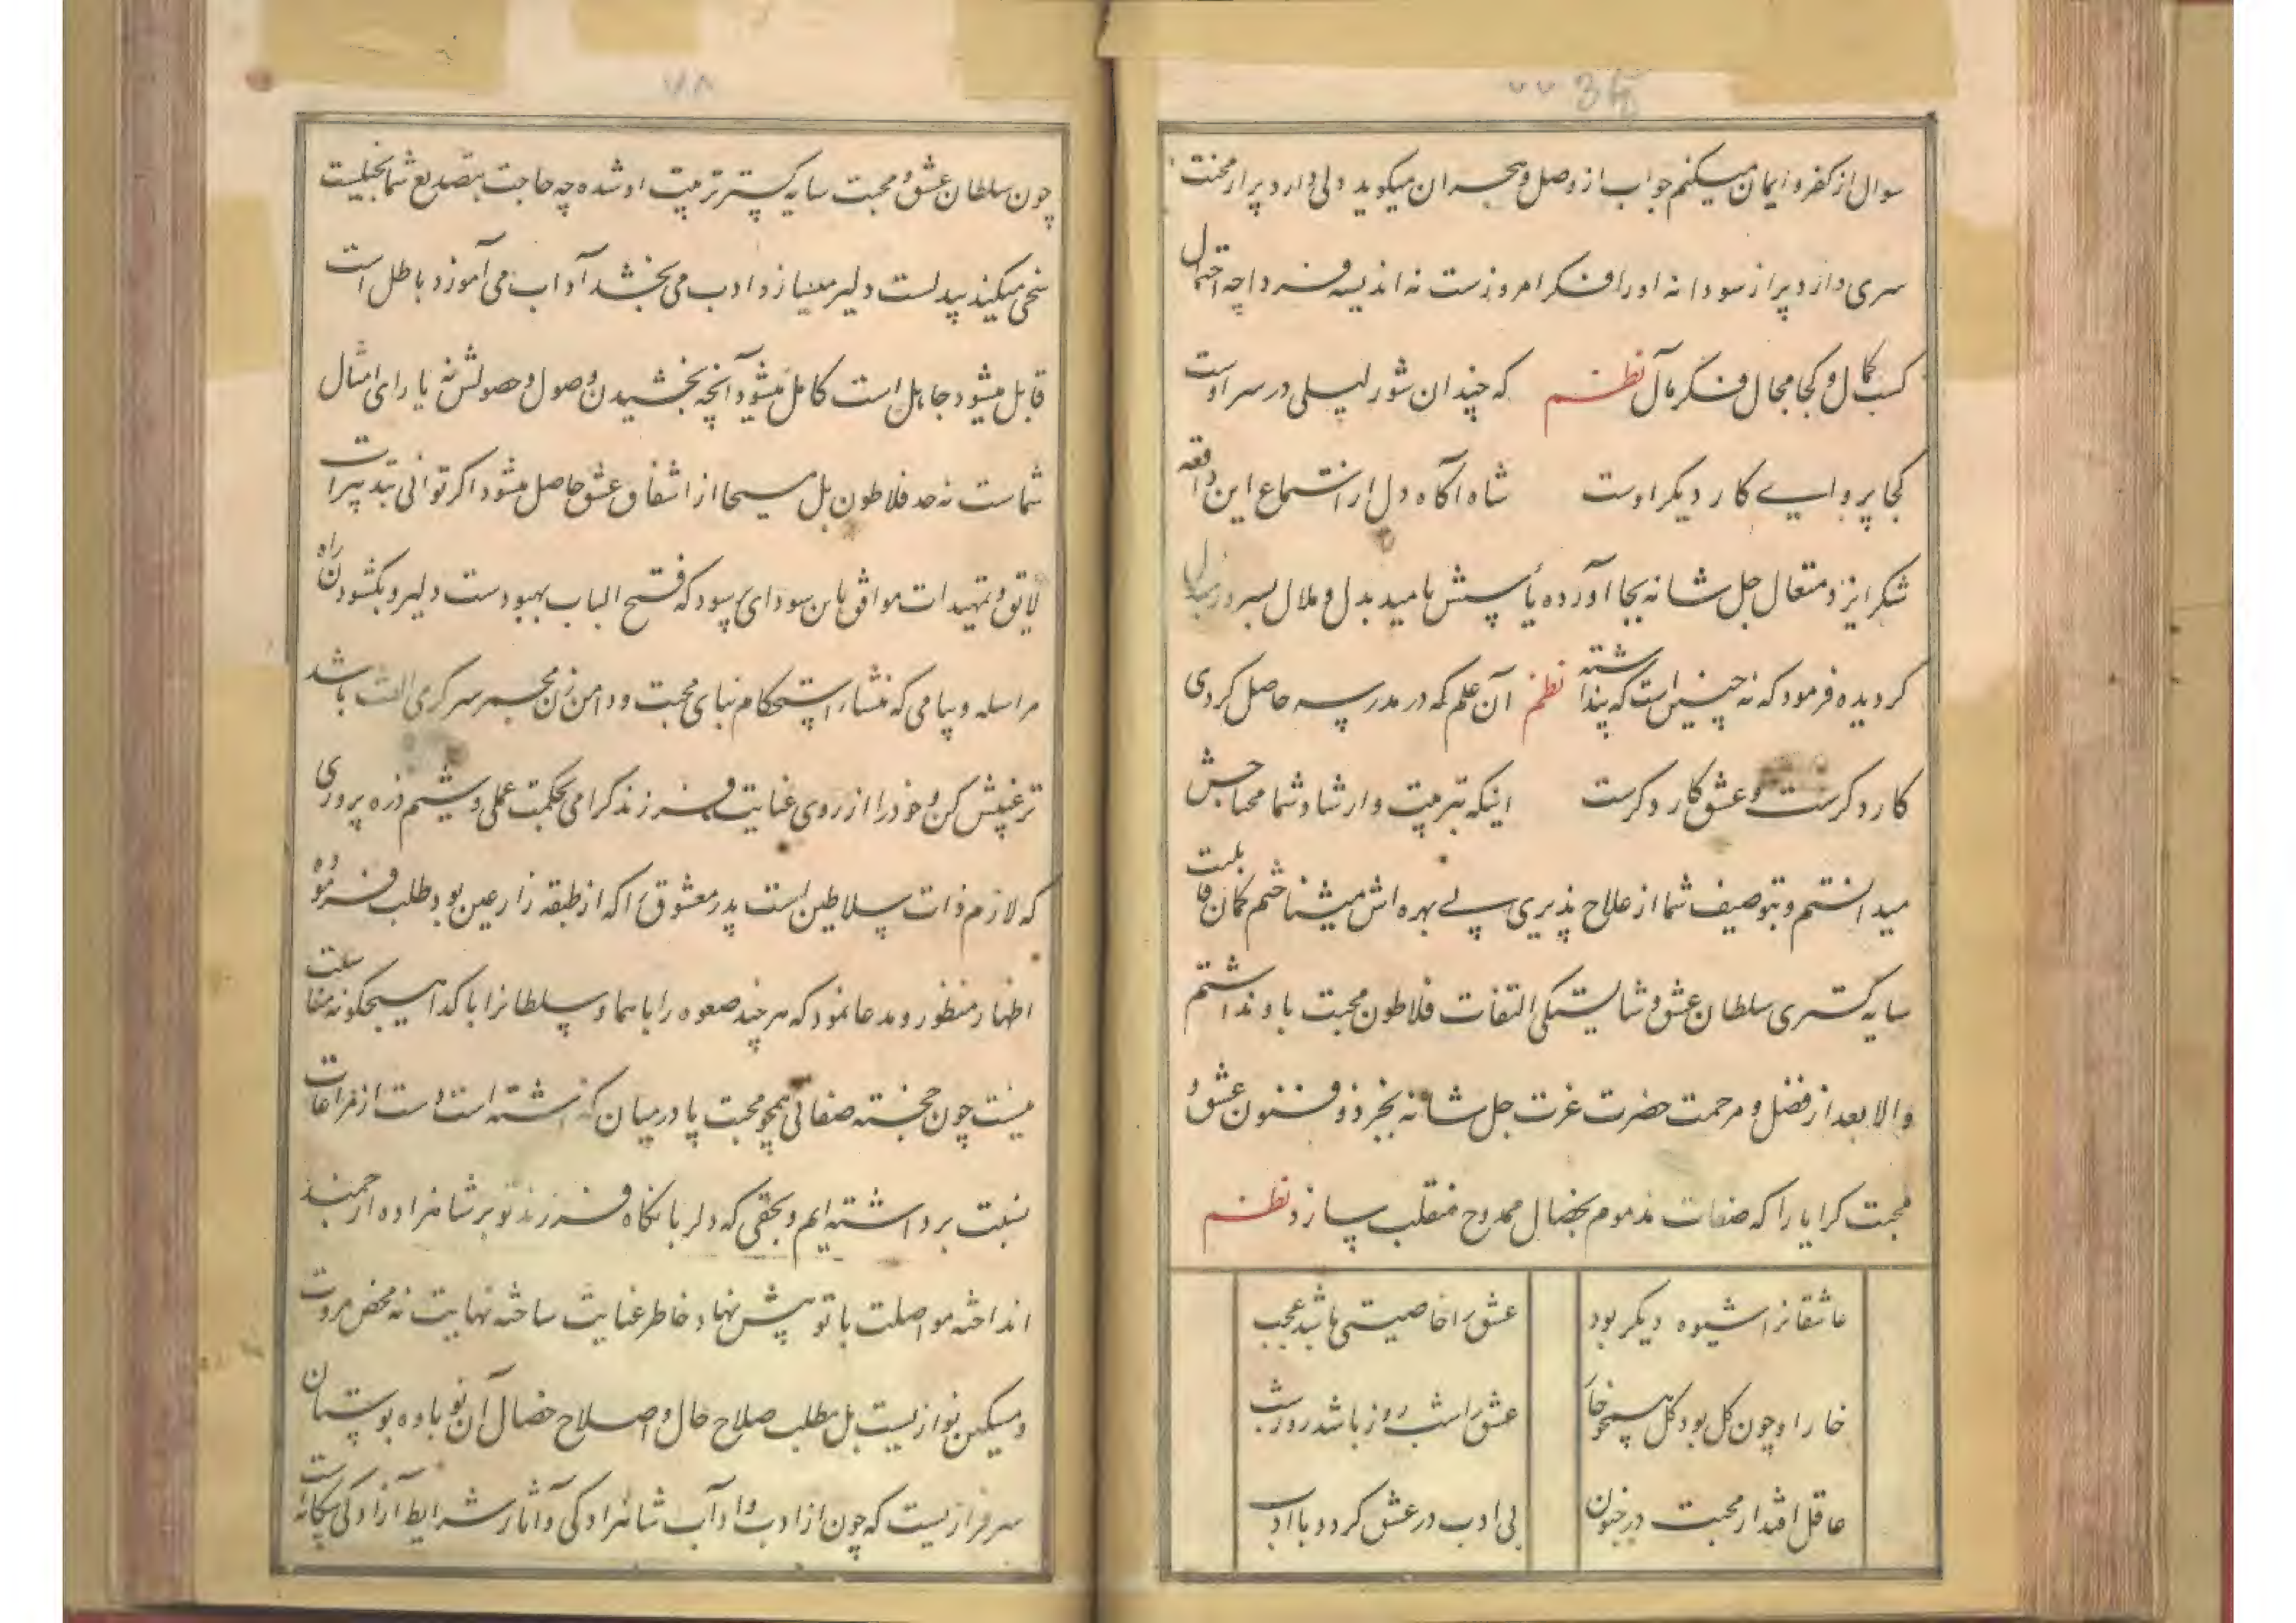 ۷۷ 36
سوال از کفر و ایمان میکنم جواب از وصل و هجران میگوید دلی دارد پر از محنت
سری دارد پر از سودا نه او را فکر امروزست نه اندیشه فردا چه احتمال
کسب کمال و کجا مجال فکر مآل نظم که چندان شور لیلی در سر اوست
کجا پروایے کار دیگر اوست شاه آگاه دل از استماع این واقعه
شکر ایزد متعال جل شانه بجا آورده یأسش بامید بدل و ملال بسرور
گردیده فرمود که نه چنین است که پنداشته نظم آن علم که در مدرسه حاصل کردی
کار دگرست و عشق کار دگرست اینکه بتربیت و ارشاد شما محتاجش
میدانستم و بتوصیف شما از علاج پذیری بے بهره اش میشناختم گمان قابلیت
سایه گستری سلطان عشق و شایستگی التفات فلاطون محبت باو نداشتم
والا بعد از فضل و مرحمت حضرت عزت جل شانه بجز ذوفنون عشق و
محبت کرا یارا که صفات مذموم بخصال ممدوح منقلب سازد نظم
عاشقانرا شیوه دیگر بود عشق را خاصیتی باشد عجب
خار او چون گل بود گل همچو خار عشق را شب روز باشد روز شب
عاقل افتد از محبت در جنون بی ادب در عشق گردد با ادب
۷۸
چون سلطان عشق و محبت سایه گستر تربیت او شده چه حاجت بتصدیع شما بخیلست
سخی میکند بیدلست دلیر میسازد ادب می بخشد آداب می آموزد باطل است
قابل میشود جاهل است کامل میشود آنچه بخشیدن وصول و حصولش نه یارای امثال
شماست نه حد فلاطون بل مسیحا از اشفاق عشق حاصل میشود اگر توانی بتدبیرات
لایق و تمهیدات موافق باین سودای پرسود که فتح الباب بهبودست دلیر و بگشودن راه
مراسله و پیامی که منشاء استحکام بنای محبت و دامن زن مجمر سرگرمی الفت باشد
ترغیبش کن و خود را از روی عنایت فرزند گرامی بحکمت عملی و شیم ذره پروری
که لازم ذات سلاطین است پدر معشوق را که از طبقه زارعین بود طلب فرموده
اظهار منظور و مدعا نمود که هر چند صعوه را با هما و سلطانرا با گدا هیچگونه مناسبت
نیست چون خجسته صفاتی همچو محبت پا در میان گذاشته است دست از مراعات
نسبت برداشته ایم و بحقی که دلربا نگاه فرزند تو بر شاهزاده ارجمند
انداخته مواصلت با تو پیش نهاد خاطر عنایت ساخته نهایت نه محض مروت
و مسکین نوازیست بل مطلب صلاح حال و اصلاح خصال آن نوباوه بوستان
سرفرازیست که چون از ادب و آداب شاهزادگی و آثار شرایط آزادگی بیگانه است